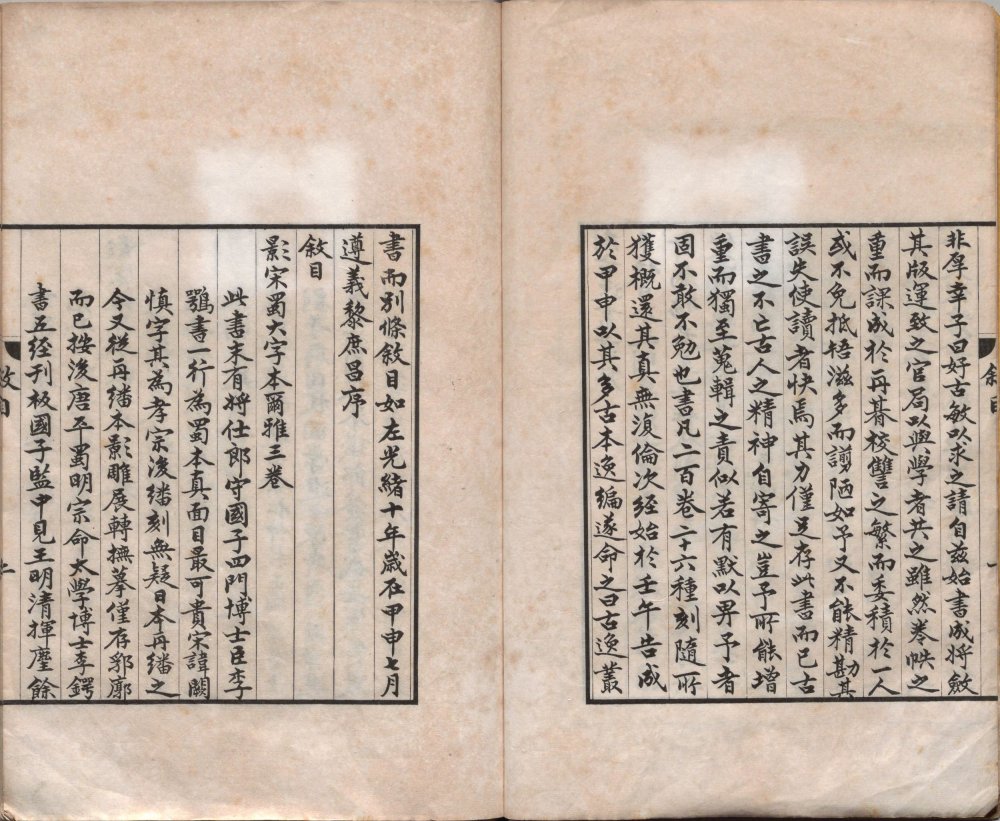 非孱幸子曰好古敏以求之請自茲始書成將斂
其版運致之官局以與學者共之雖然卷帙之
重而課成於一再朞校讐之繁而委積於一人
或不免抵牾滋多而謭陋如予又不能精勘其
誤失使讀者怏焉其力僅足存此書而已古
書之不亡古人之精神自寄之豈予所能增
重而獨至蒐輯之責似若有默以畀予者
固不敢不勉也書凡二百卷二十六種刻隨所
獲概還其真無湏倫次經始於壬午告成
於甲申以其多古本逸編遂命之曰古逸叢
敘目
一
書而別條敘目如左光緒十年歲在甲申七月
遵義黎庶昌序
敘目
影宋蜀大字本爾雅三卷
此書末有將仕郎守國子四門博士臣李
鶚書一行為蜀本真面目最可貴宋諱闕
慎字其為孝宗後繙刻無疑日本再繙之
今又從再繙本影雕展轉撫摹僅存郛廓
而已按後唐平蜀明宗命太學博士李鍔
書五經刊板國子監中見王明清揮麈餘
敘目